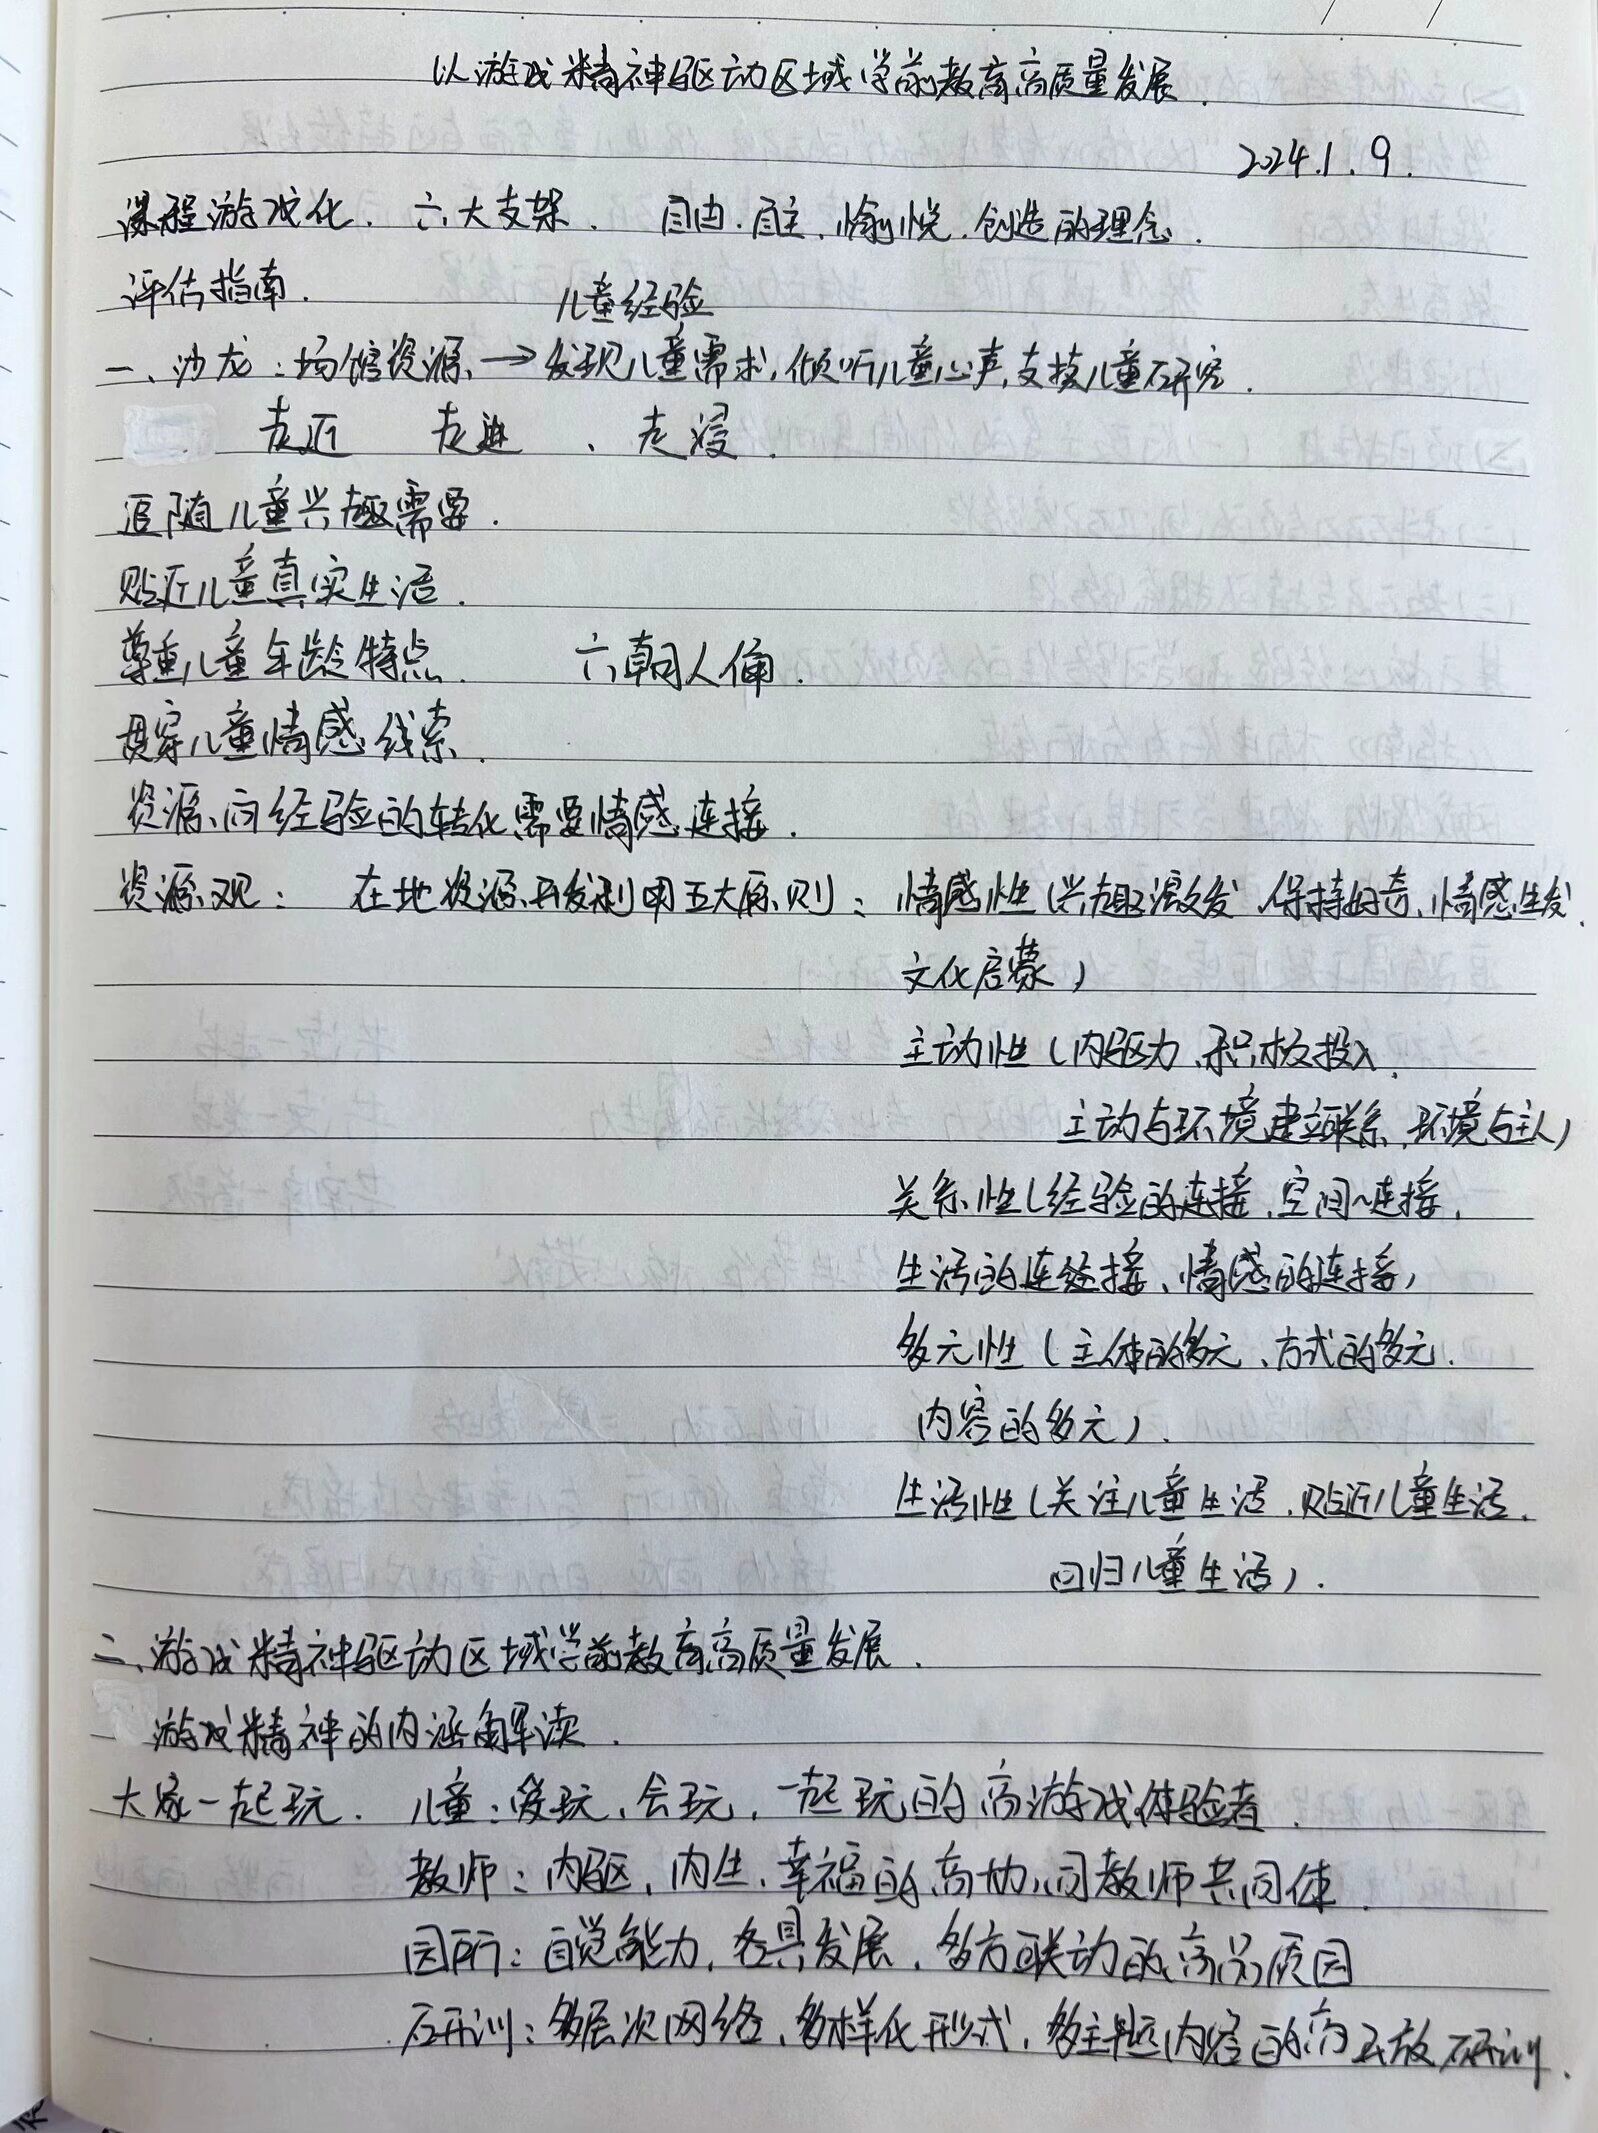 以游戏精神驱动区域学前教育高质量发展.
2024.1.9.
课程游戏化. 六大支架. 自由.自主.愉悦.创造的理念.
评估指南.
儿童经验
一、沙龙:场馆资源→发现儿童需求,倾听儿童心声,支持儿童研究.
走近 走进、走浸.
追随儿童兴趣需要.
贴近儿童真实生活.
尊重儿童年龄特点. 六朝人俑.
贯穿儿童情感线索.
资源向经验的转化需要情感连接.
资源观: 在地资源开发利用五大原则:情感性(兴趣激发、保持好奇、情感生发.
文化启蒙)
主动性(内驱力、积极投入.
主动与环境建立联系.环境与主人)
关系性(经验的连接.空间~连接,
生活的连接、情感的连接)
多元性(主体的多元、方式的多元.
内容的多元).
生活性(关注儿童生活.贴近儿童生活.
回归儿童生活).
二、游戏精神驱动区域学前教育高质量发展.
游戏精神的内涵解读.
大家一起玩. 儿童:爱玩、会玩,一起玩的高游戏体验者.
教师:内驱,内生.幸福的高协同教师共同体.
园所:自觉能力,各具发展,多方联动的高品质园
研训:多层次网络,多样化形式,多主题内容的高开放研训.